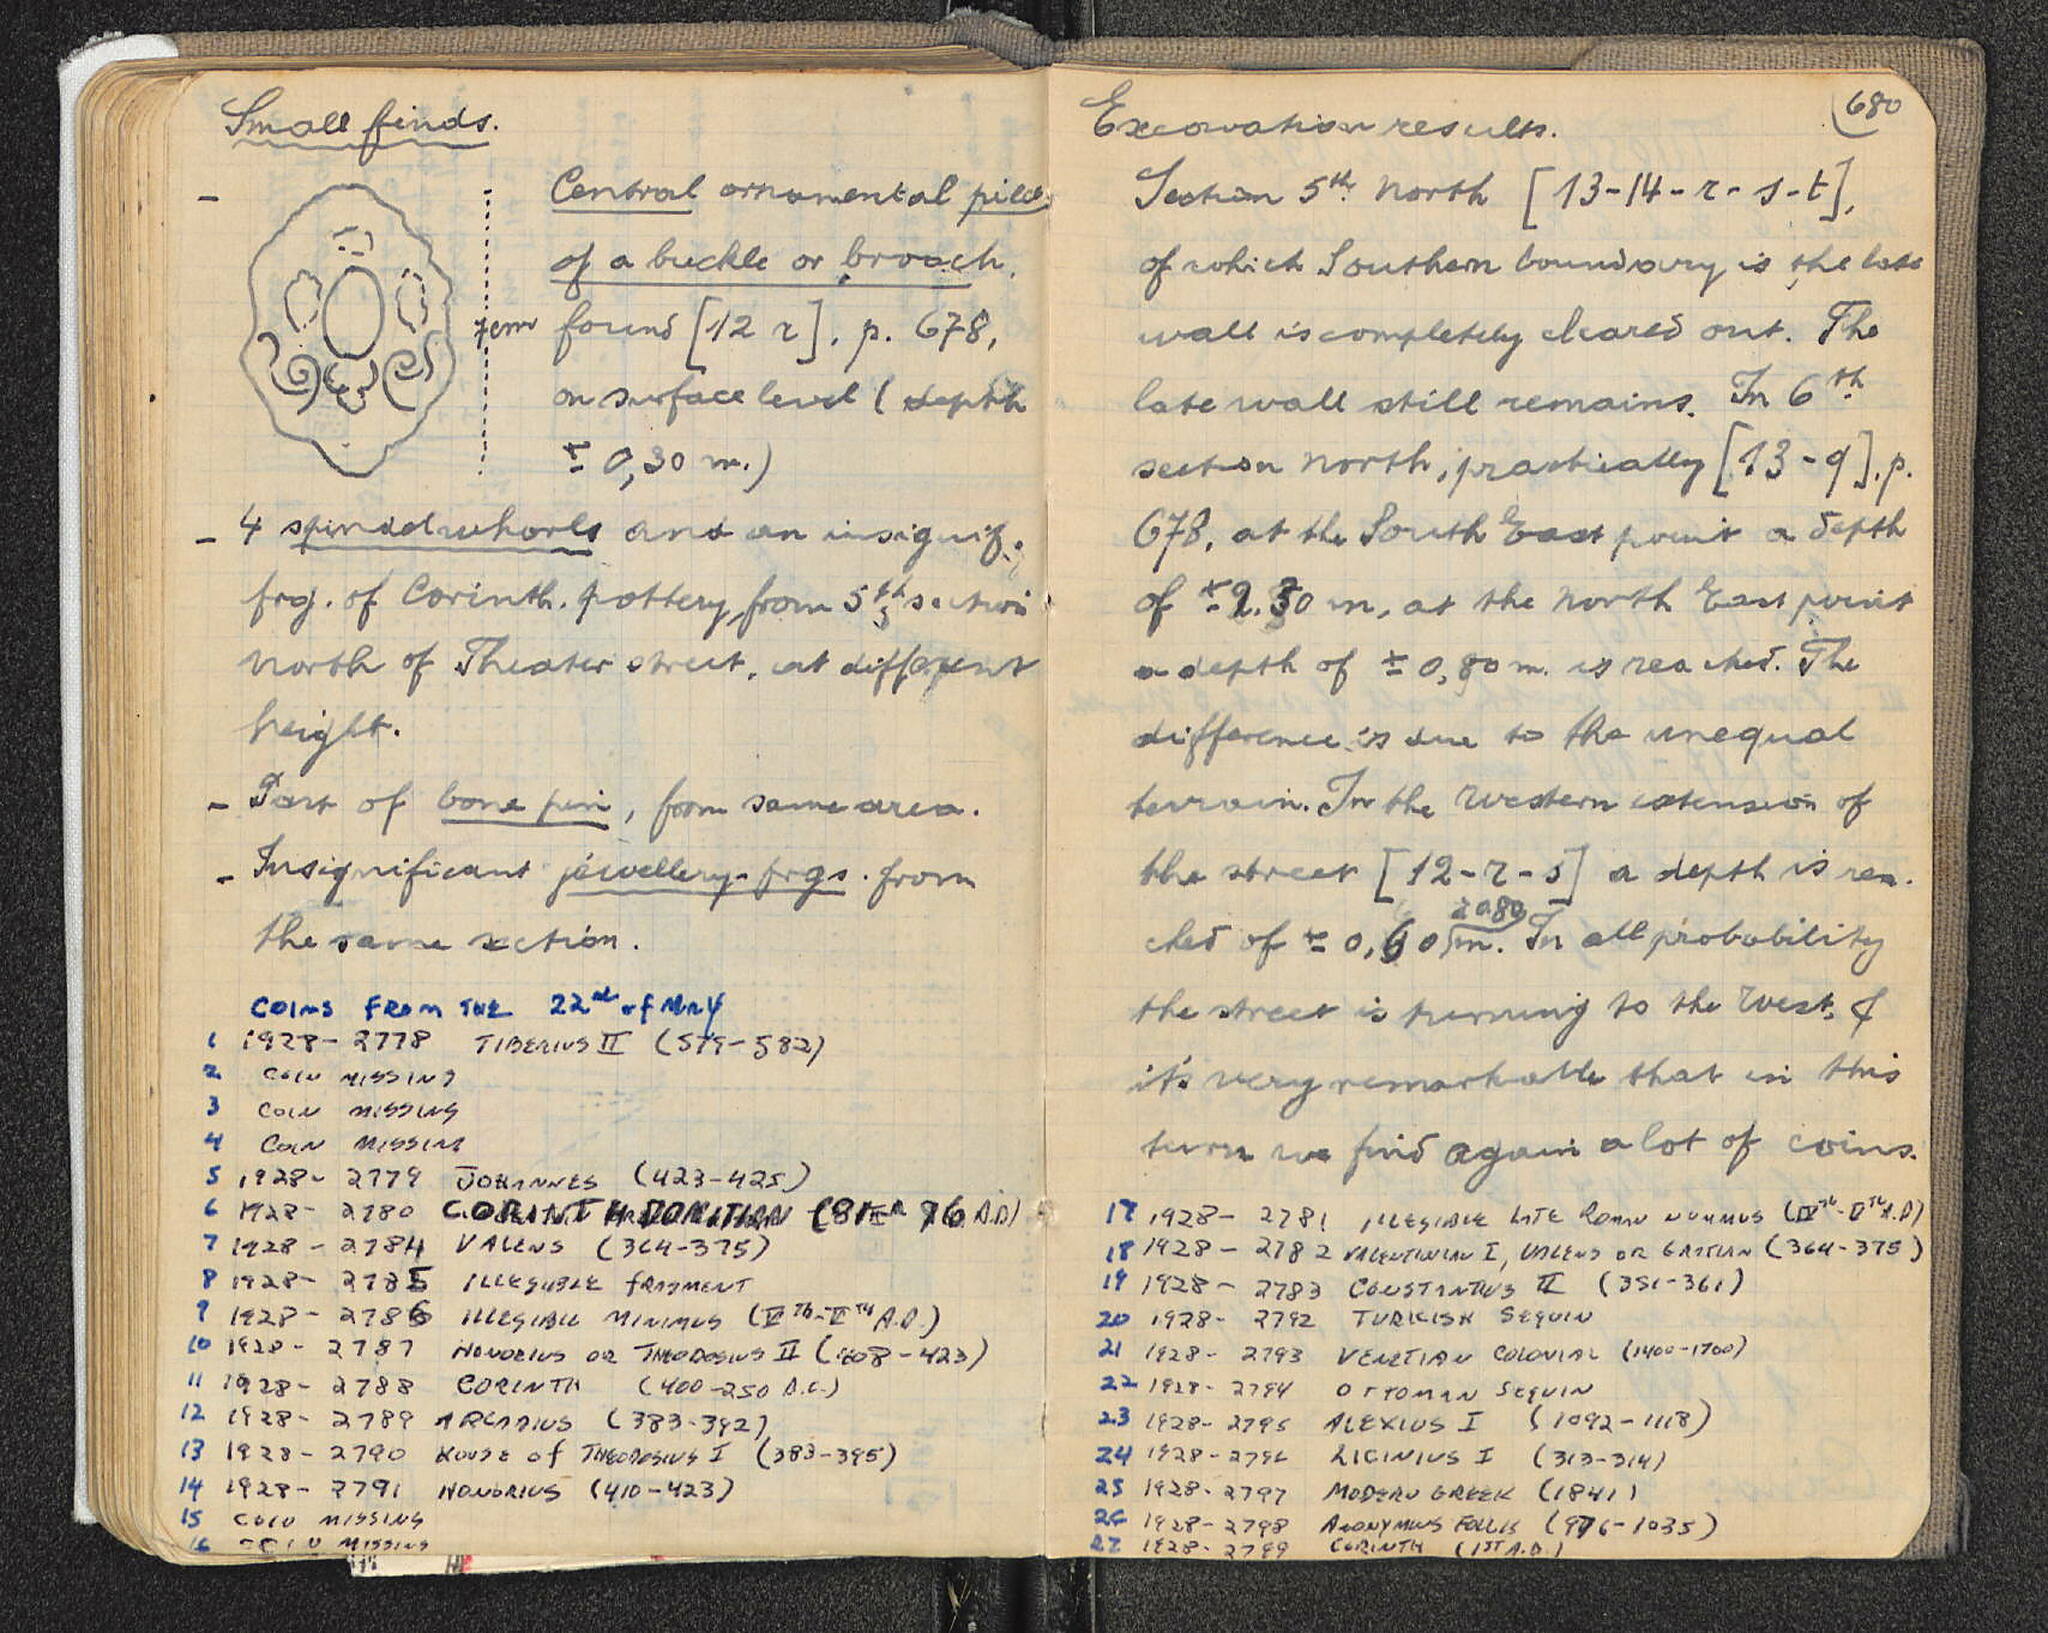 Small finds.
- Central ornamental piece
of a buckle or brooch,
7cm
found [12 r], p. 678,
on surface level (depth
± 0,30 m.)
- 4 spindelwhorls and an insignif.
frg. of Corinth. pottery, from 5th section
North of Theater street, at different
height.
- Part of bone pin, from same area.
- Insignificant jewellery-frgs. from
the same section.
COINS FROM THE 22nd of MAY
1 1928- 2778 TIBERIUS II (579-582)
2 COIN MISSING
3 COIN MISSING
4 COIN MISSING
5 1928- 2779 JOHANNES (423-425)
6 1928- 2780 CORINTH DOMITIAN (81 96 A.D)
7 1928- 2784 VALENS (364-375)
8 1928- 2785 ILLEGIBLE FRAGMENT
9 1928- 2786 ILLEGIBLE MINIMUS (A.D.)
10 1928- 2787 HONORIUS OR THEODOSIUS II (408-423)
11 1928- 2788 CORINTH (400-250 B.C.)
12 1928- 2789 ARCADIUS (383-392)
13 1928- 2790 HOUSE of THEODOSIUS I (383-395)
14 1928- 2791 HONORIUS (410-423)
15 COIN MISSING
16 COIN MISSING
680
Excavation results.
Section 5th North [13-14-r-s-t],
of which Southern boundary is the late
wall is completely cleared out. The
late wall still remains. In 6th
section North, practically [13-q], p.
678, at the South East point a depth
of ± 2.30 m, at the North East point
a depth of ± 0,80 m. is reached. The
difference is due to the unequal
terrain. In the Western extension of
the street [12-r-s] a depth is rea-
ched of ± 0,60 m. In all probability
the street is turning to the West, &
it's very remarkable that in this
turn we find again a lot of coins.
17 1928- 2781 ILLEGIBLE LATE ROMAN NUMMUS (IVTH-VTH A.D)
18 1928- 2782 VALENTINIAN I, VALENS OR GRATIAN (364-375)
19 1928- 2783 CONSTANTIUS II (351-361)
20 1928- 2792 TURKISH SEQUIN
21 1928- 2793 VENETIAN COLONIAL (1400-1700)
22 1928- 2794 OTTOMAN SEQUIN
23 1928- 2795 ALEXIUS I (1092-1118)
24 1928- 2796 LICINIUS I (313-314)
25 1928- 2797 MODERN GREEK (1841)
26 1928- 2798 ANONYMOUS FOLLIS (976-1035)
27 1928- 2799 CORINTH (1ST A.D.)